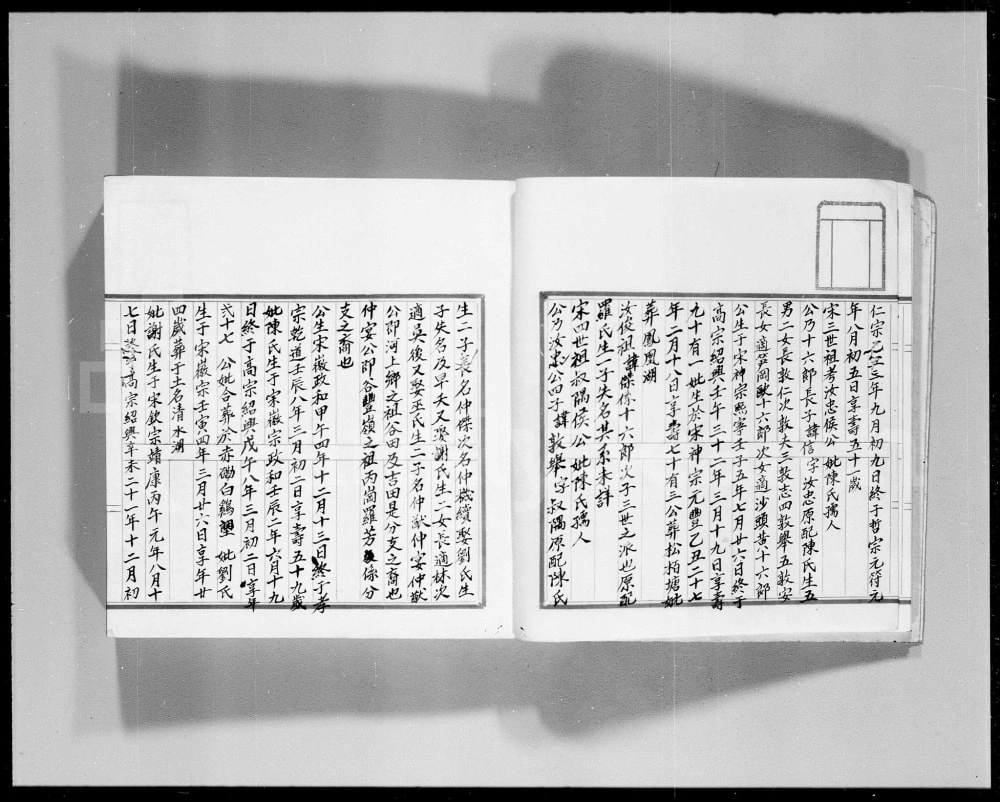 仁宗三年九月初九日終于哲宗元符元
年八月初五日享壽五十一歲
宋三世祖考汝忠侯公 妣陳氏孺人
公乃十六郎長子諱信字汝忠原配陳氏生五
男二女長敦仁次敦夫三敦志四敦舉五敦安
長女適筍岡歐十六郎次女適沙頭黄十六郎
公生于宋神宗熙寧壬子五年七月廿六日終于
高宗紹興壬午三十二年三月十九日享壽
九十有一 妣生於宋神宗元豐乙丑二十七
年二月十八日享壽七十有三公葬松柏塘妣
葬鳳凰湖
汝俊祖諱傑係十六郎次子三世之派也原配
羅氏生一子失名其系未詳
宋四世祖叔隅侯公 妣陳氏孺人
公乃汝忠公四子諱敦舉字叔隅原配陳氏
生二子長名仲傑次名仲續娶劉氏生
子失名及早夭又娶謝氏生一女長適林次
適吳後又娶巫氏生二子名仲猷仲宴仲猷
公即河上鄉之祖谷田及吉田是分支之裔也
仲宴公即谷豐嶺之祖丙崗羅芳係分
支之裔也
公生宋徽政和甲午四年十二月十三日終于孝
宗乾道壬辰八年三月初二日享壽五十九歲
妣陳氏生于宋徽宗政和壬辰二年六月十九
日終于高宗紹興戊午八年三月初二日享年
弍十七 公妣合葬於赤磡白鶴塱 妣劉氏
生于宋徽宗壬寅四年三月廿六日享年廿
四歲葬于土名清水湖
妣謝氏生于宋欽宗靖康丙午元年八月十
七日終高宗紹興辛未二十一年十二月初